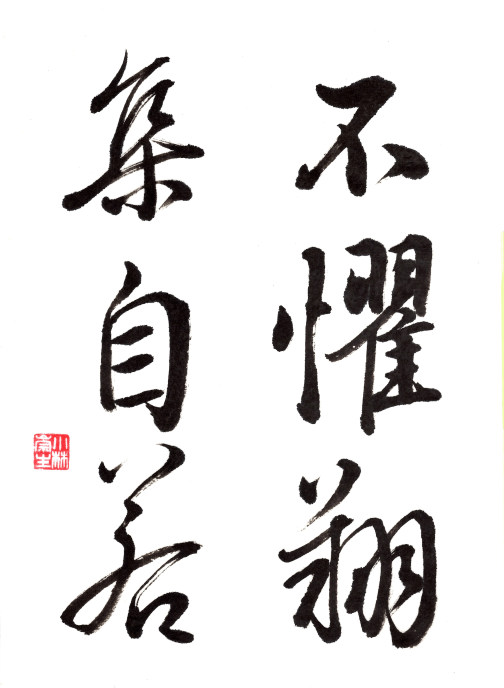 不懼翔
集自若
小林